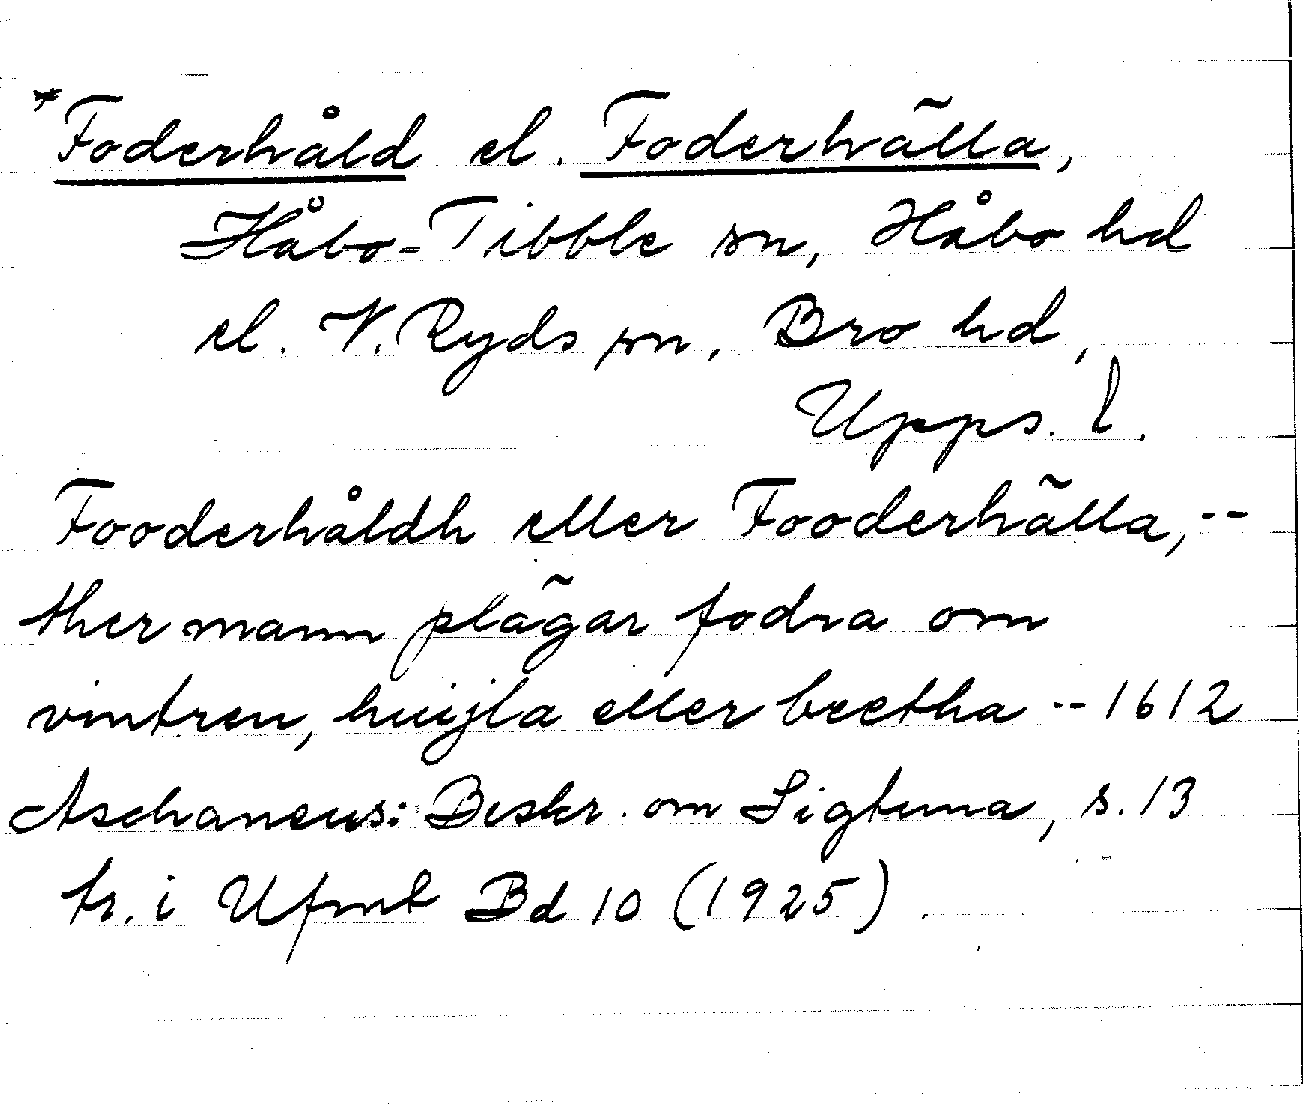 *Foderhåld el. Foderhälla,
Håbo-Tibble sn, Håbo hd
el. V. Ryds sn, Bro hd,
Upps. l.
Fooderhåldh eller Fooderhälla, --
ther mann plägar fodra om
vintren, huijla eller beetha -- 1612
Aschaneus: Beskr. om Sigtuna, s. 13
tr. i Ufmt Bd 10 (1925)